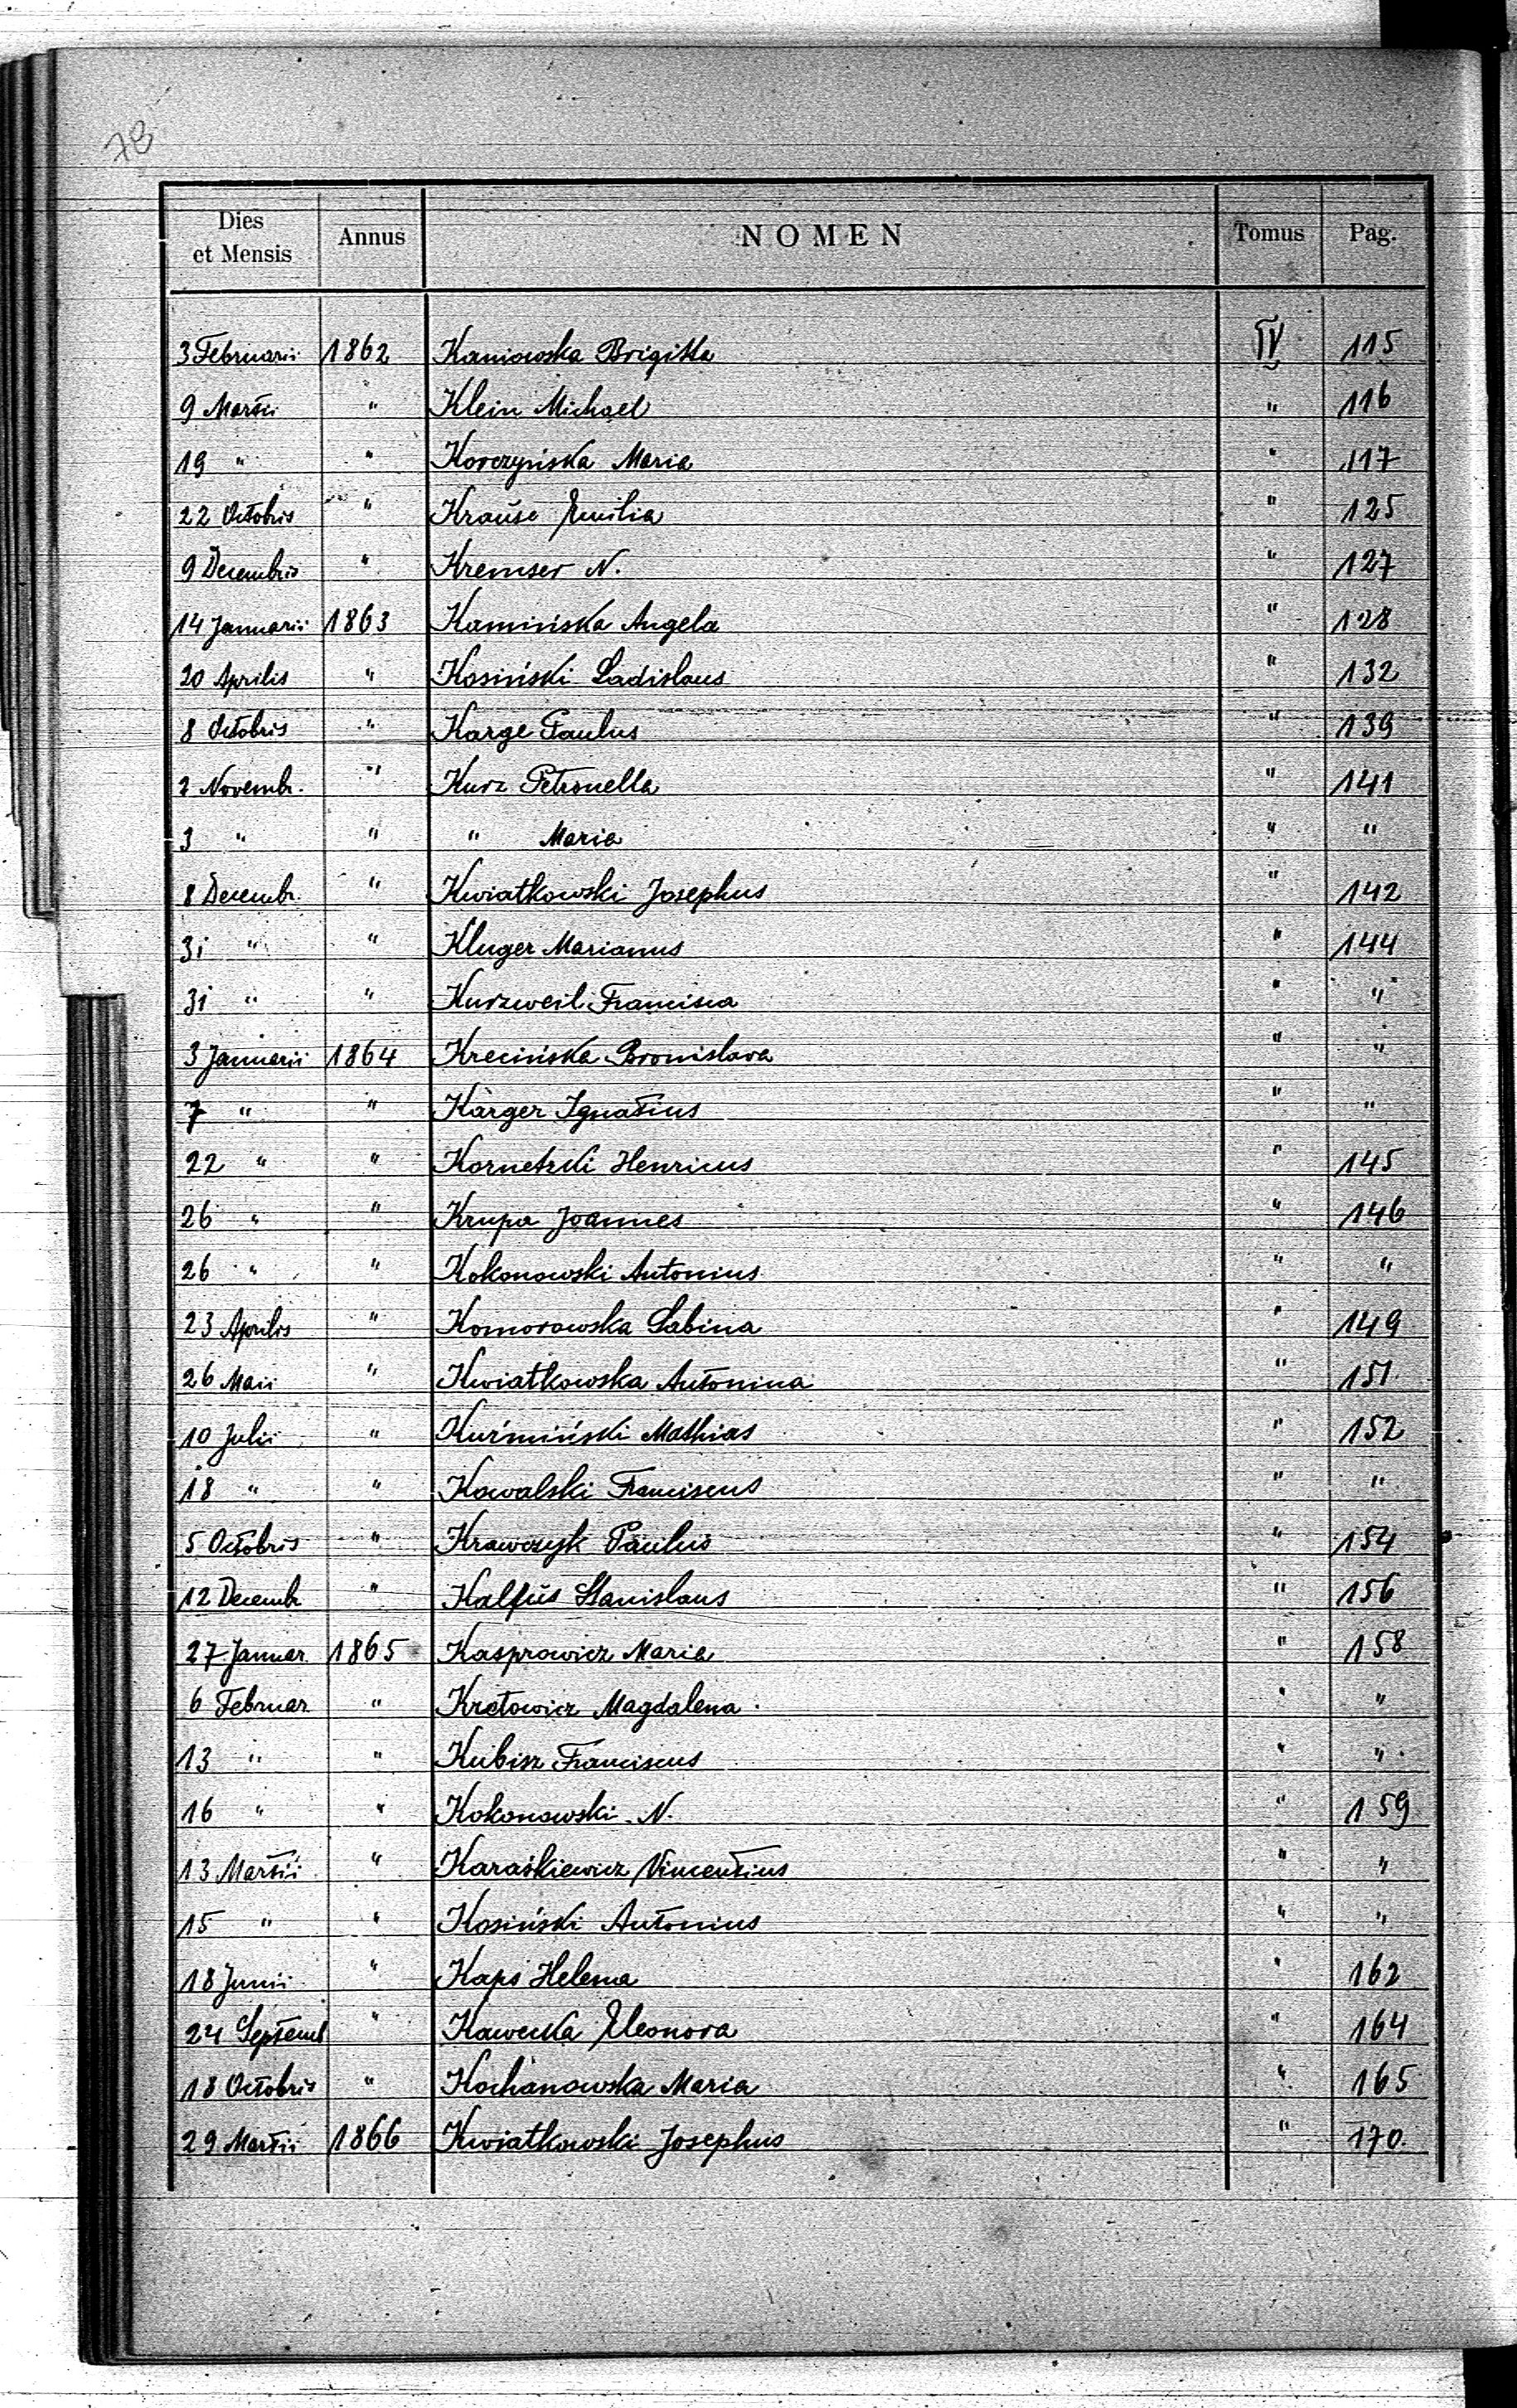 78
Dies et Mensis Annus NOMEN Tomus Pag.
3 Februarii 1862 Kaniowska Brigitta IV 115
9 Martii " Klein Michael " 116
19 " " Korczyńska Maria " 117
22 Octobris " Krause Emilia " 125
9 Decembris " Kremser N. " 127
14 Januarii 1863 Kamińska Angela " 128
20 Aprilis " Kosiński Ladislaus " 132
8 Octobris " Karge Paulus " 139
2 Novembr. " Kurz Petronella " 141
3 " " " Maria " "
8 Decembr. " Kwiatkowski Josephus " 142
31 " " Kluger Marianus " 144
31 " " Kurzweil Francisca " "
3 Januarii 1864 Krecińska Bronislava " "
7 " " Kärger Ignatius " "
22 " " Kornetzki Henricus " 145
26 " " Krupa Joannes " 146
26 " " Kokonowski Antonius " "
23 Aprilis " Komorowska Sabina " 149
26 Maii " Kwiatkowska Antonina " 151
10 Julii " Kuźmiński Mathias " 152
18 " " Kowalski Franciscus " "
5 Octobris " Krawczyk Paulus " 154
12 Decembr " Kalfus Stanislaus " 156
27 Januar. 1865 Kasprowicz Maria " 158
6 Februar. " Kretowicz Magdalena " "
13 " " Kubisz Franciscus " "
16 " " Kokonowski N. " 159
13 Martii " Karaśkiewicz Vincentius " "
15 " " Kosiński Antonius " "
18 Junii " Kaps Helena " 162
24 Septemb " Kawecka Eleonora " 164
18 Octobris " Kochanowska Maria " 165
29 Martii 1866 Kwiatkowski Josephus " 170.